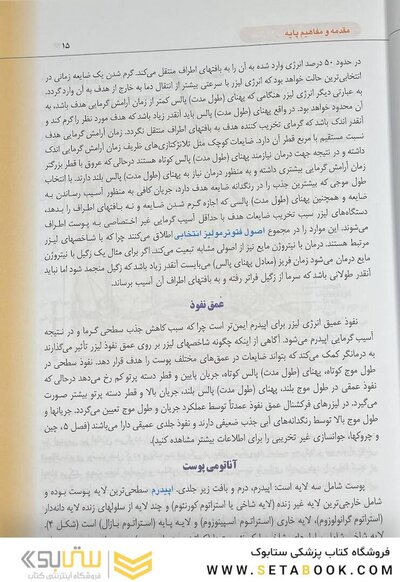 مقدمه و مفاهیم پایه
۱۵
در حدود ۵۰ درصد انرژی وارد شده به آن را به بافتهای اطراف منتقل می‌کند. گرم شدن یک ضایعه زمانی در
انتخابی‌ترین حالت خواهد بود که انرژی لیزر با سرعتی بیشتر از انتقال دما به خارج از هدف به آن وارد گردد.
به عبارتی دیگر انرژی لیزر هنگامی که پهنای (طول مدت) پالس کمتر از زمان آرامش گرمایی هدف باشد، به
آن محدود خواهد بود. در واقع پهنای (طول مدت) پالس باید آنقدر زیاد باشد که هدف مورد نظر را گرم کند و
آنقدر اندک باشد که گرمای تخریب کننده هدف به بافتهای اطراف منتقل نگردد. زمان آرامش گرمایی هدف
نسبت مستقیم با مربع قطر آن دارد. ضایعات کوچک مثل تلانژکتازی‌های ظریف زمان آرامش گرمایی اندک
داشته و در نتیجه جهت درمان نیازمند پهنای (طول مدت) پالس کوتاه هستند درحالی که عروق با قطر بزرگتر
زمان آرامش گرمایی بیشتری داشته و به منظور درمان نیاز به پهنای (طول مدت) پالس بلند دارند. با انتخاب
طول موجی که بیشترین جذب را در رنگدانه ضایعه هدف دارد، جریان کافی به منظور آسیب رساندن به
ضایعه و همچنین پهنای (طول مدت) پالسی که اجازه گرم شدن ضایعه و نه بافتهای اطراف را بدهد،
دستگاه‌های لیزر سبب تخریب ضایعات هدف با حداقل آسیب گرمایی غیر اختصاصی به پوست اطراف
می‌شوند. این موارد را در مجموع اصول فتوترمولیز انتخابی اطلاق می‌کنند چرا که با شاخصهای لیزر
مرتبط هستند. درمان با نیتروژن مایع نیز از اصولی مشابه تبعیت می‌کند: اگر برای مثال یک زگیل با نیتروژن
مایع درمان می‌شود زمان فریز (معادل پهنای پالس) می‌بایست آنقدر زیاد باشد که زگیل منجمد شود اما نباید
آنقدر طولانی باشد که سرما از زگیل فراتر رفته و به بافتهای اطراف آن آسیب برساند.
عمق نفوذ
نفوذ عمیق انرژی لیزر برای اپیدرم ایمن‌تر است چرا که سبب کاهش جذب سطحی گرما و در نتیجه
آسیب گرمایی اپیدرم می‌شود. آگاهی از اینکه چگونه شاخصهای لیزر بر روی عمق نفوذ لیزر تأثیر می‌گذارند
به درمانگر کمک می‌کند که بتواند ضایعات در عمق‌های مختلف پوست را هدف قرار دهد. نفوذ سطحی در
طول موج کوتاه، پهنای (طول مدت) پالس کوتاه، جریان پایین و قطر دسته پرتو کم رخ می‌دهد درحالی که
نفوذ عمقی در طول موج بلند، پهنای (طول مدت) پالس بلند، جریان بالا و قطر دسته پرتو بیشتر صورت
می‌گیرد. در لیزرهای فرکشنال عمق نفوذ عمدتاً توسط عملکرد جریان و طول موج تعیین می‌گردد. جریانها و
طول موج بالا توسط رنگدانه‌های آبی جذب ضعیفی دارند و نفوذ جلدی عمیقی دارا می‌باشند (فصل ۵، چین
و چروکها، جوانسازی غیر تخریبی را برای اطلاعات بیشتر مشاهده کنید).
آناتومی پوست
پوست شامل سه لایه است: اپیدرم، درم و بافت زیر جلدی. اپیدرم سطحی‌ترین لایه پوست بوده و
شامل خارجی‌ترین لایه غیر زنده (لایه شاخی یا استراتوم کورنئوم) و چند لایه از سلولهای زنده لایه دانه‌دار
(استراتوم گرانولوزوم)، لایه خاری (استراتوم اسپینوزوم) و لایه پایه (استراتوم بازال) است (شکل ۴).
فروشگاه کتاب پزشکی ستابوک
WWW.SETABOOK.COM
ستابوک
فروشگاه اینترنتی کتاب